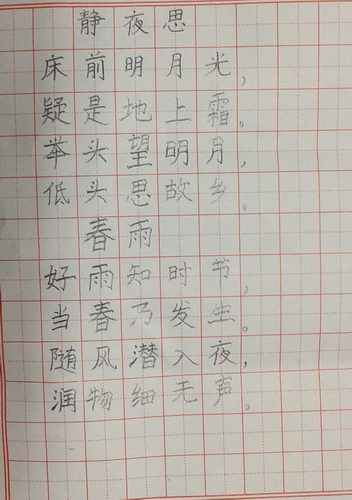 静夜思
床前明月光，
疑是地上霜。
举头望明月，
低头思故乡。
春雨
好雨知时节，
当春乃发生。
随风潜入夜，
润物细无声。